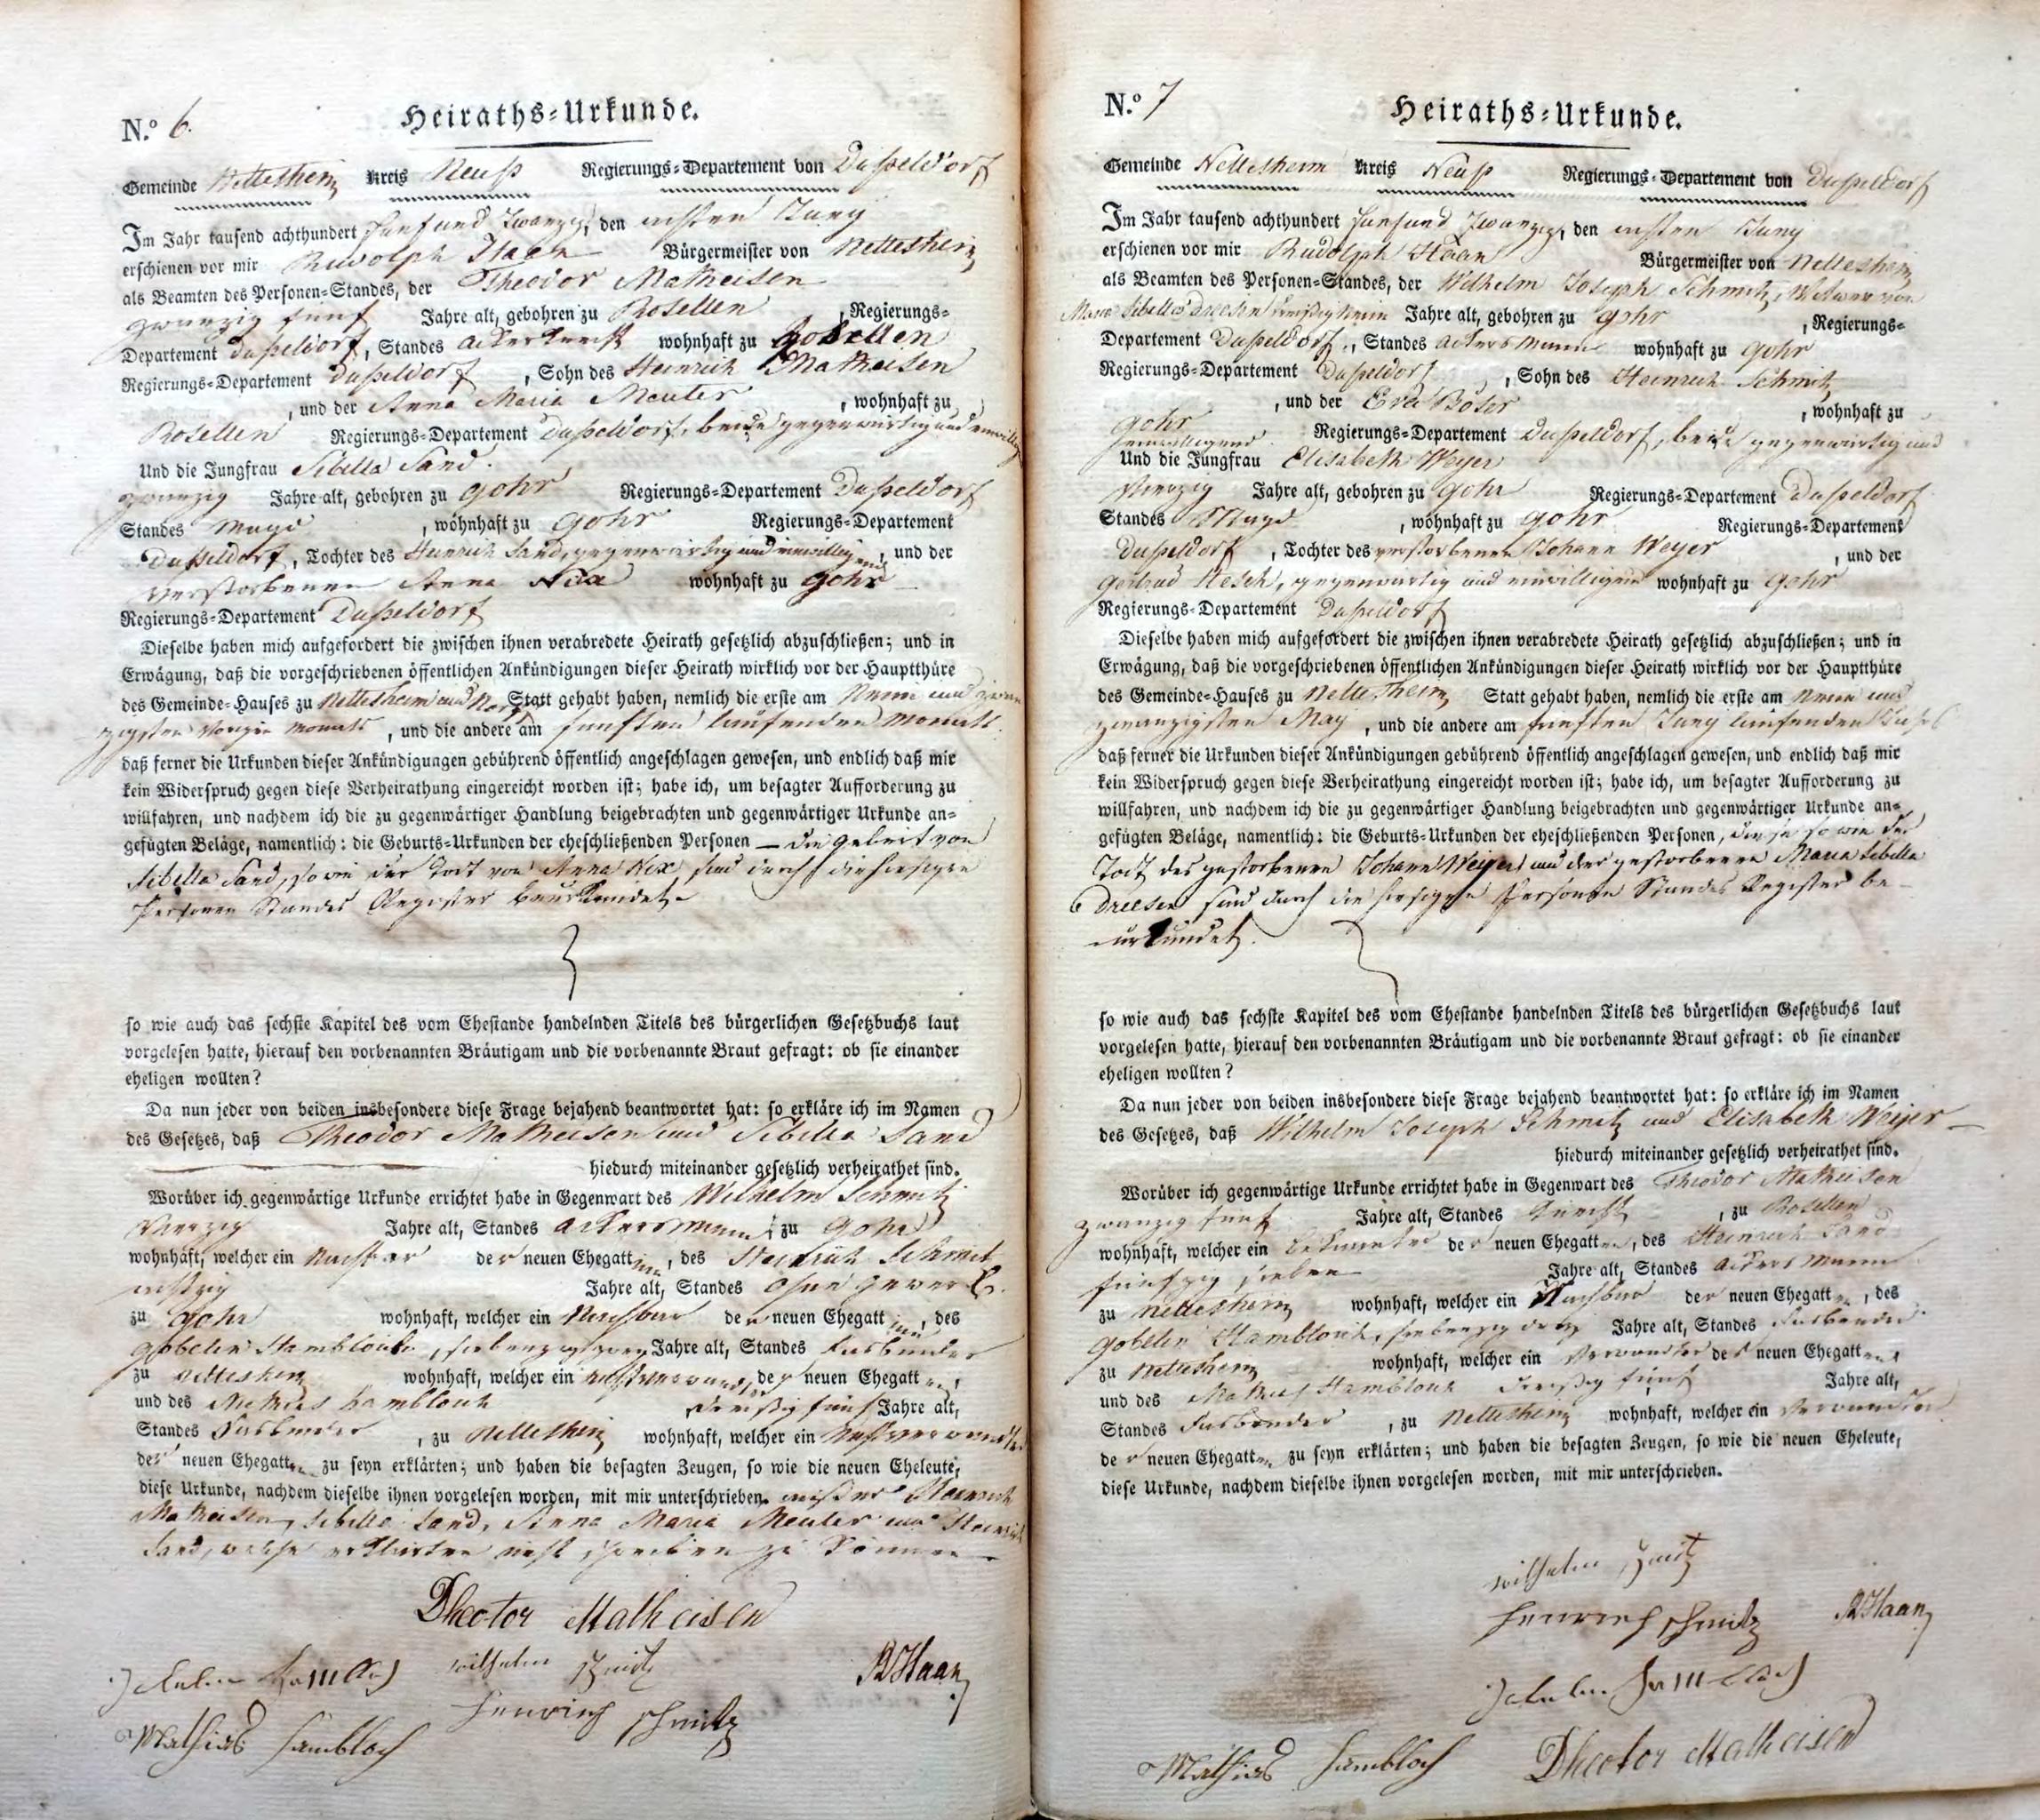 N.º 6.
Heiraths-Urkunde.
Gemeinde Nettesheim Kreis Neuß Regierungs-Departement von Dusseldorf
Im Jahr tausend achthundert funfund zwanzig, den achten Juny
erschienen vor mir Rudolph Haan Bürgermeister von Nettesheim
als Beamten des Personen-Standes, der Theodor Matheisen
zwanzig funf Jahre alt, gebohren zu Rosellen, Regierungs-
Departement Dusseldorf, Standes Ackerknecht wohnhaft zu Rosellen
Regierungs-Departement Dusseldorf, Sohn des Heinrich Matheisen
, und der Anna Maria Meuter, wohnhaft zu
Rosellen Regierungs-Departement Dusseldorf, beide gegenwärtig und einwillig
Und die Jungfrau Sibilla Sand.
zwanzig Jahre alt, gebohren zu Gohr Regierungs-Departement Dusseldorf
Standes Magd, wohnhaft zu Gohr Regierungs-Departement
Dusseldorf, Tochter des Heinrich Sand, gegenwärtig und einwilligend, und der
verstorbenen Anna Nix wohnhaft zu Gohr
Regierungs-Departement Dusseldorf
Dieselbe haben mich aufgefordert die zwischen ihnen verabredete Heirath gesetzlich abzuschließen; und in
Erwägung, daß die vorgeschriebenen öffentlichen Ankündigungen dieser Heirath wirklich vor der Hauptthüre
des Gemeinde-Hauses zu Nettesheim und Statt gehabt haben, nemlich die erste am Neun und zwan
zigsten vorigen Monats, und die andere am funften laufenden Monats.
daß ferner die Urkunden dieser Ankündigungen gebührend öffentlich angeschlagen gewesen, und endlich daß mir
kein Widerspruch gegen diese Verheirathung eingereicht worden ist; habe ich, um besagter Aufforderung zu
willfahren, und nachdem ich die zu gegenwärtiger Handlung beigebrachten und gegenwärtiger Urkunde an-
gefügten Beläge, namentlich: die Geburts-Urkunden der eheschließenden Personen — die Geburt von
Sibella Sand, so wie der Tod von Anna Nix, sind durch die hiesigen
Personen Standes Register beurkundet.
so wie auch das sechste Kapitel des vom Ehestande handelnden Titels des bürgerlichen Gesetzbuchs laut
vorgelesen hatte, hierauf den vorbenannten Bräutigam und die vorbenannte Braut gefragt: ob sie einander
eheligen wollten?
Da nun jeder von beiden insbesondere diese Frage bejahend beantwortet hat: so erkläre ich im Namen
des Gesetzes, daß Theodor Matheisen und Sibilla Sand
hiedurch miteinander gesetzlich verheirathet sind.
Worüber ich gegenwärtige Urkunde errichtet habe in Gegenwart des Wilhelm Schmitz
vierzig Jahre alt, Standes Ackersmann zu Gohr
wohnhaft, welcher ein Nachbar der neuen Ehegattinn, des Heinrich Schmitz
achtzig Jahre alt, Standes ohne Gewerb.
zu Gohr wohnhaft, welcher ein Nachbar der neuen Ehegattinn, des
Gobelin Hamblouch, siebenzig zwey Jahre alt, Standes Fasbender
zu Nettesheim wohnhaft, welcher ein nichtverwandter der neuen Ehegatten,
und des Mathias Hamblouch dreißig funf Jahre alt,
Standes Fasbender, zu Nettesheim wohnhaft, welcher ein nichtverwandter
der neuen Ehegatten zu seyn erklärten; und haben die besagten Zeugen, so wie die neuen Eheleute,
diese Urkunde, nachdem dieselbe ihnen vorgelesen worden, mit mir unterschrieben. außer Heinrich
Matheisen, Sibilla Sand, Anna Maria Meuter und Heinrich
Sand, welche erklärten nicht schreiben zu können
Dheotor Matheisen
Wilhelm Schmitz
R Haan
Henrich Schmitz
Mathias Hambloch
N.º 7
Heiraths-Urkunde.
Gemeinde Nettesheim Kreis Neuß Regierungs-Departement von Dusseldorf
Im Jahr tausend achthundert funfund zwanzig, den achten Juny
erschienen vor mir Rudolph Haan Bürgermeister von Nettesheim
als Beamten des Personen-Standes, der Wilhelm Joseph Schmitz, Witwer von
Maria Sibilla Dreesen dreißig neun Jahre alt, gebohren zu Gohr, Regierungs-
Departement Dusseldorf, Standes Ackersmann wohnhaft zu Gohr
Regierungs-Departement Dusseldorf, Sohn des Heinrich Schmitz
, und der Eva Böser, wohnhaft zu
Gohr Regierungs-Departement Dusseldorf, beide gegenwärtig und
einwilligend.
Und die Jungfrau Elisabeth Weyer
vierzig Jahre alt, gebohren zu Gohr Regierungs-Departement Dusseldorf
Standes Magd, wohnhaft zu Gohr Regierungs-Departement
Dusseldorf, Tochter des verstorbenen Johann Weyer, und der
Gertrud Hesch, gegenwärtig und einwilligend wohnhaft zu Gohr
Regierungs-Departement Dusseldorf
Dieselbe haben mich aufgefordert die zwischen ihnen verabredete Heirath gesetzlich abzuschließen; und in
Erwägung, daß die vorgeschriebenen öffentlichen Ankündigungen dieser Heirath wirklich vor der Hauptthüre
des Gemeinde-Hauses zu Nettesheim Statt gehabt haben, nemlich die erste am Neun und
zwanzigsten May, und die andere am funften Juny laufenden Jahres
daß ferner die Urkunden dieser Ankündigungen gebührend öffentlich angeschlagen gewesen, und endlich daß mir
kein Widerspruch gegen diese Verheirathung eingereicht worden ist; habe ich, um besagter Aufforderung zu
willfahren, und nachdem ich die zu gegenwärtiger Handlung beigebrachten und gegenwärtiger Urkunde an-
gefügten Beläge, namentlich: die Geburts-Urkunden der eheschließenden Personen, diese so wie der
Tod des gestorbenen Johann Weyer und der gestorbenen Maria Sibilla
Dreesen sind durch die hiesigen Personen Standes Register be-
urkundet.
so wie auch das sechste Kapitel des vom Ehestande handelnden Titels des bürgerlichen Gesetzbuchs laut
vorgelesen hatte, hierauf den vorbenannten Bräutigam und die vorbenannte Braut gefragt: ob sie einander
eheligen wollten?
Da nun jeder von beiden insbesondere diese Frage bejahend beantwortet hat: so erkläre ich im Namen
des Gesetzes, daß Wilhelm Joseph Schmitz und Elisabeth Weyer
hiedurch miteinander gesetzlich verheirathet sind.
Worüber ich gegenwärtige Urkunde errichtet habe in Gegenwart des Theodor Matheisen
zwanzig funf Jahre alt, Standes Knecht, zu Rosellen
wohnhaft, welcher ein bekannter der neuen Ehegatten, des Heinrich Sand
funfzig sieben Jahre alt, Standes Ackersmann
zu Nettesheim wohnhaft, welcher ein Nachbar der neuen Ehegatten, des
Gobelin Hamblouch, siebenzig drey Jahre alt, Standes Fasbender
zu Nettesheim wohnhaft, welcher ein Verwandter der neuen Ehegatten
und des Mathias Hamblouch dreißig funf Jahre alt,
Standes Fasbender, zu Nettesheim wohnhaft, welcher ein Verwandter
der neuen Ehegatten zu seyn erklärten; und haben die besagten Zeugen, so wie die neuen Eheleute,
diese Urkunde, nachdem dieselbe ihnen vorgelesen worden, mit mir unterschrieben.
Wilhelm Schmitz
Henrich Schmitz
R Haan
Mathias Hambloch
Dheotor Matheisen